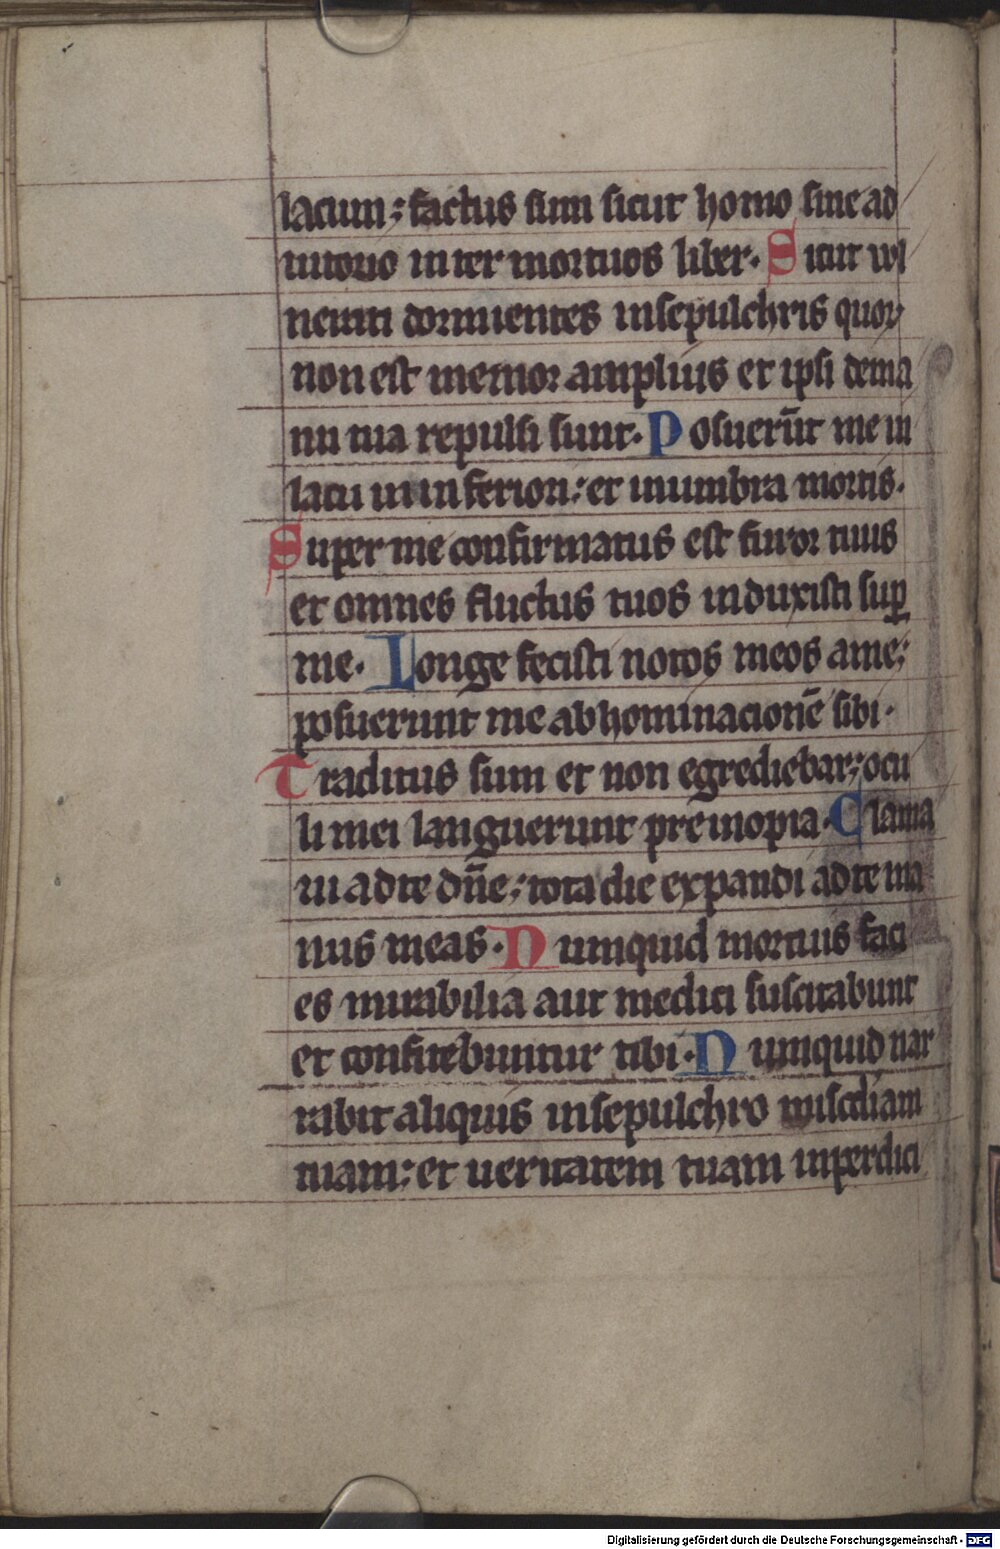 lacum; factus sum sicut homo sine ad
iutorio inter mortuos liber. Sicut vul
nerati dormientes in sepulchris quoꝝ
non est memor amplius et ipsi de ma
nu tua repulsi sunt. Posuerūt me in
lacu in inferiori: et in umbra mortis.
Super me confirmatus est furor tuus
et omnes fluctus tuos induxisti suꝑ
me. Longe fecisti notos meos a me;
posuerunt me abhominacionē sibi.
Traditus sum et non egrediebar; ocu
li mei languerunt pre inopia. Clama
ui ad te dn̄e; tota die expandi ad te ma
nus meas. Numquid mortuis faci
es mirabilia aut medici suscitabunt
et confitebuntur tibi. Numquid nar
rabit aliquis in sepulchro miscdiam
tuam: et ueritatem tuam in perdici
Digitalisierung gefördert durch die Deutsche Forschungsgemeinschaft - DFG